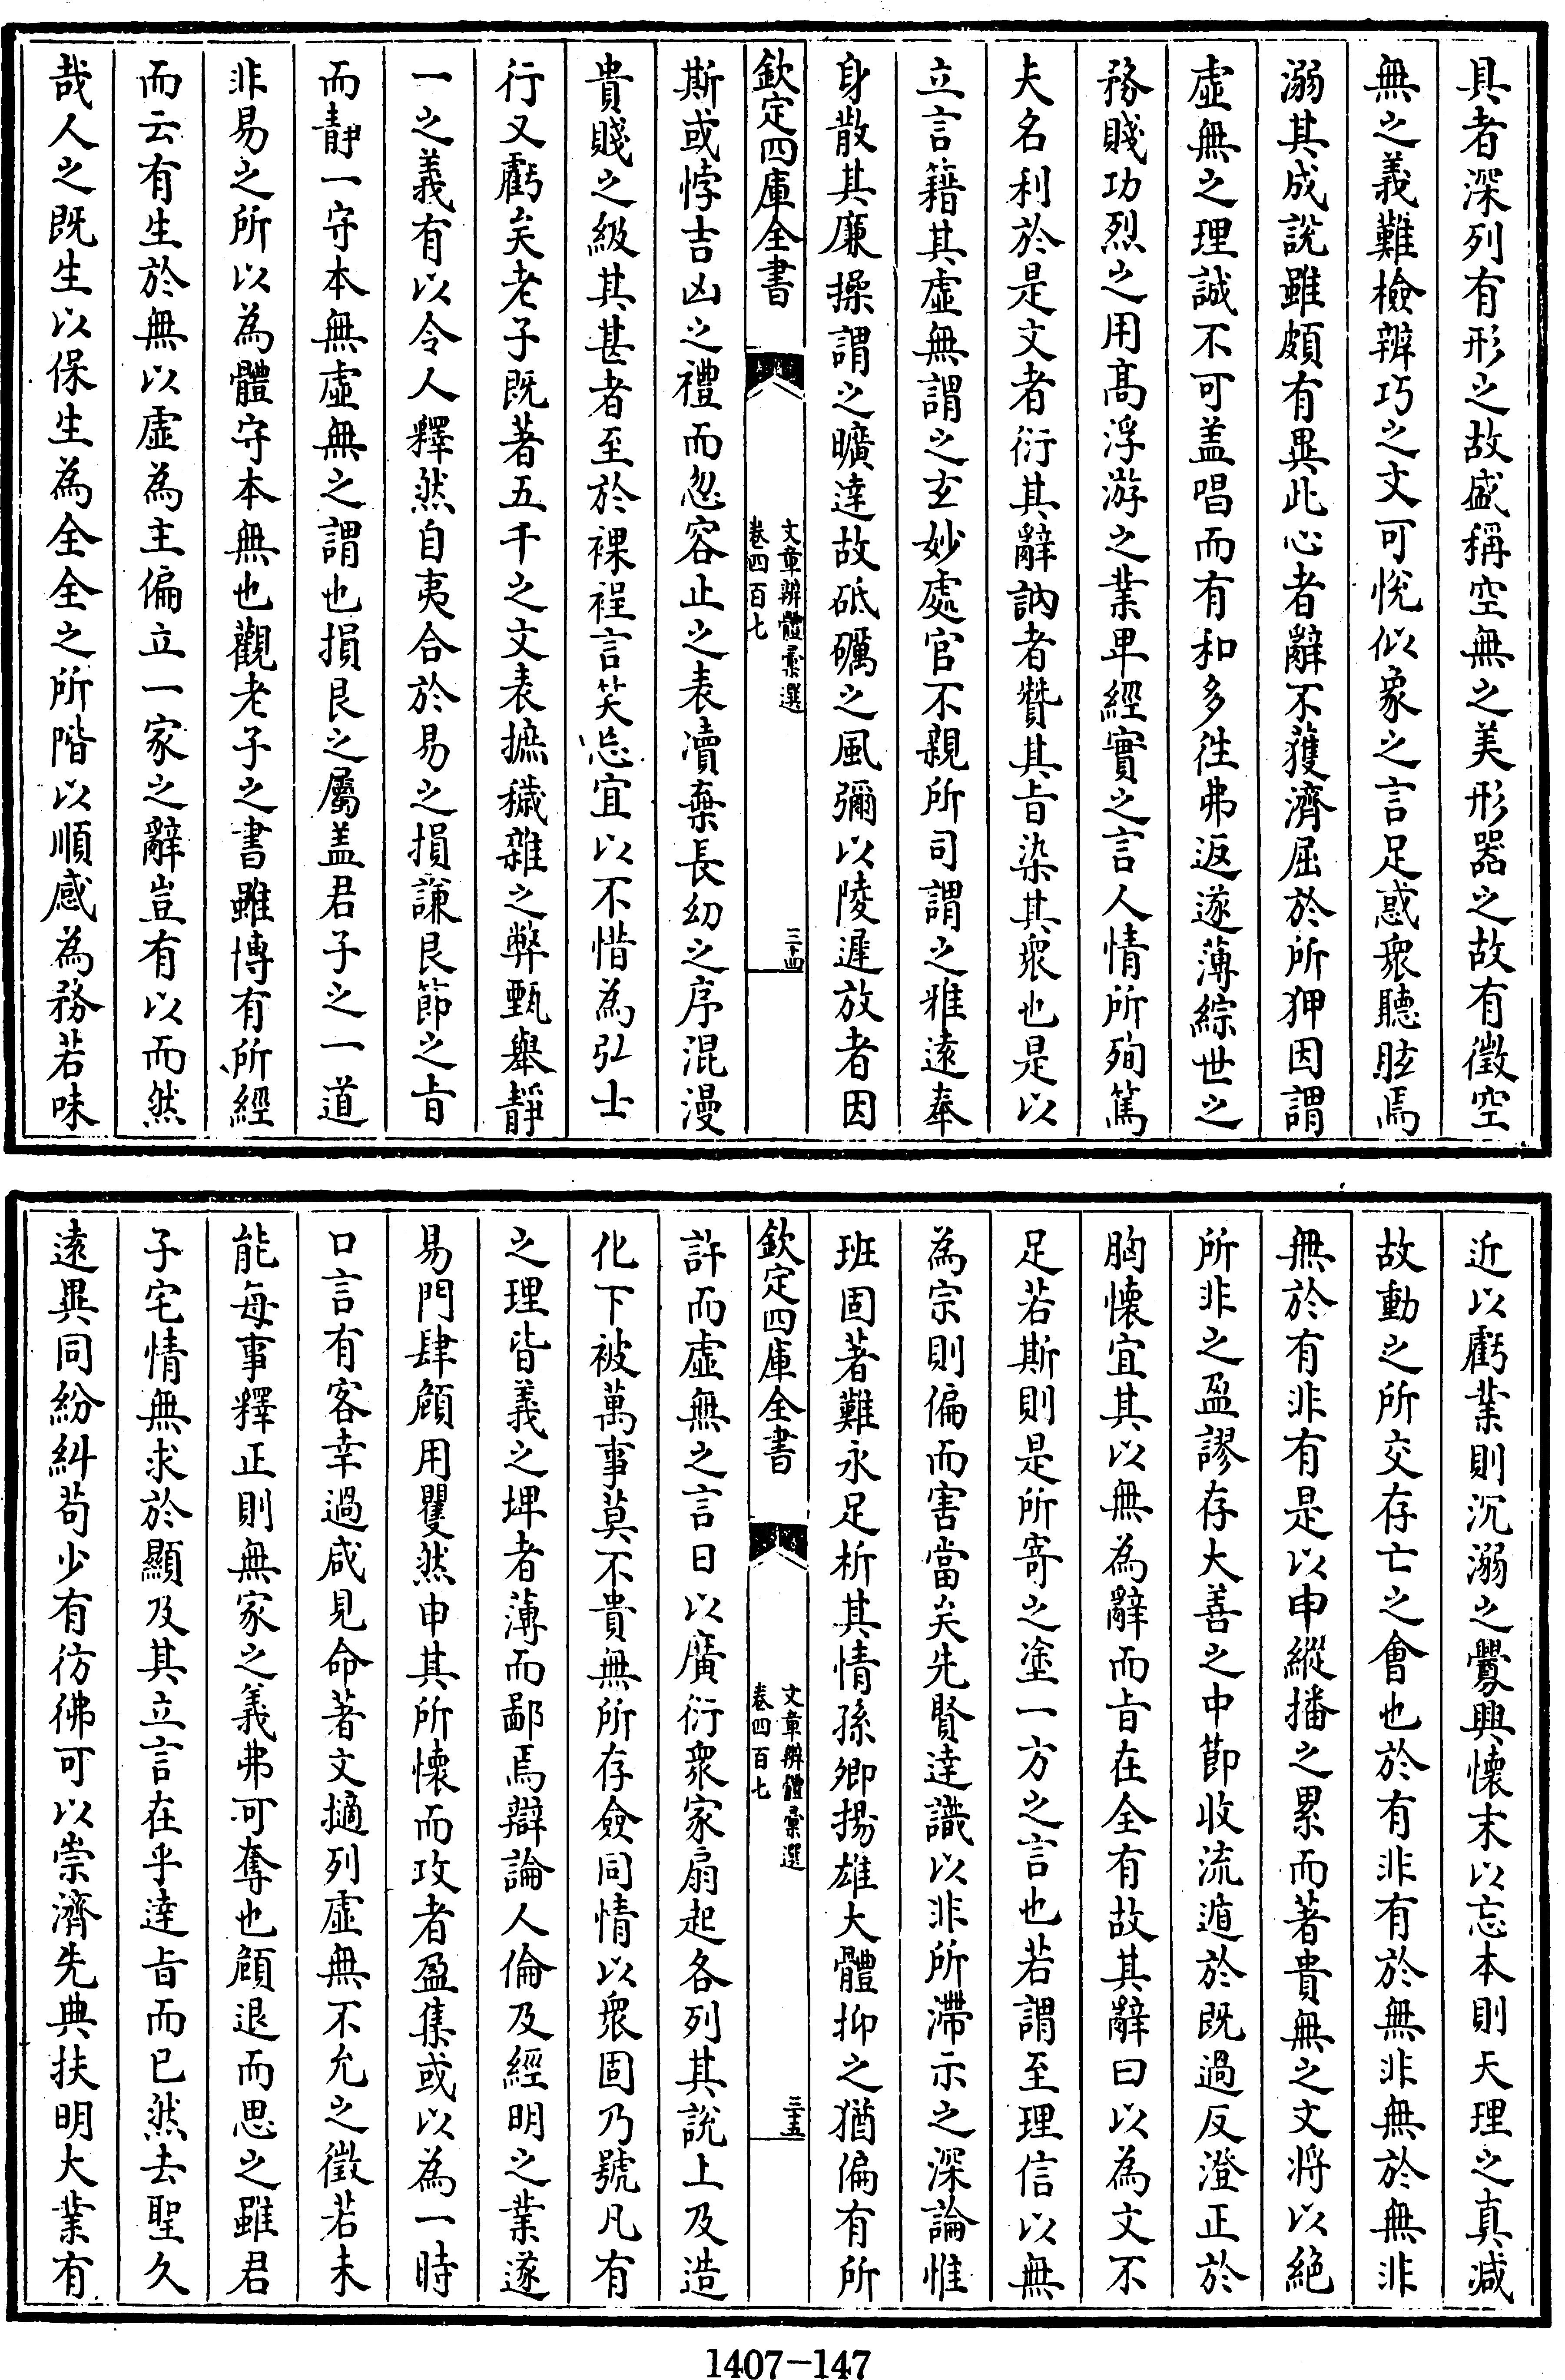 具者深列有形之故盛稱空無之美形器之故有徵空
無之義難檢辨巧之文可恱似象之言足惑衆聽眩焉
溺其成説雖頗有異此心者辭不獲濟屈於所狎因謂
虚無之理誠不可盖唱而有和多徃弗返遂薄綜世之
務賤功烈之用髙浮游之業卑經實之言人情所殉篤
夫名利於是文者衍其辭訥者贊其㫖染其衆也是以
立言籍其虚無謂之玄妙處官不親所司謂之雅逺奉
身散其廉操謂之曠達故砥礪之風彌以陵遲放者因
欽定四庫全書
文章辨體彚選
卷四百七
三十四
斯或悖吉凶之禮而忽容止之表瀆棄長幼之序混漫
貴賤之級其甚者至於裸裎言笑忘宜以不惜為弘士
行又虧矣老子既著五千之文表摭穢雜之弊甄舉靜
一之義有以令人釋然自夷合於易之損謙艮節之㫖
而靜一守本無虚無之謂也損艮之屬盖君子之一道
非易之所以為體守本無也觀老子之書雖博有所經
而云有生於無以虚為主偏立一家之辭豈有以而然
哉人之既生以保生為全全之所階以順感為務若味
近以虧業則沉溺之釁興懷末以忘本則天理之真減
故動之所交存亡之會也於有非有於無非無於無非
無於有非有是以申縱播之累而著貴無之文將以絶
所非之盈謬存大善之中節收流遁於既過反澄正於
胸懷宜其以無為辭而㫖在全有故其辭曰以為文不
足若斯則是所寄之塗一方之言也若謂至理信以無
為宗則偏而害當矣先賢達識以非所滯示之深論惟
班固著難永足析其情孫卿揚雄大體抑之猶偏有所
欽定四庫全書
文章辨體彚選
卷四百七
三十五
許而虚無之言日以廣衍衆家扇起各列其説上及造
化下被萬事莫不貴無所存僉同情以衆固乃號凡有
之理皆義之埤者薄而鄙焉辯論人倫及經明之業遂
易門肆顧用瞿然申其所懷而攻者盈集或以為一時
口言有客幸過咸見命著文擿列虚無不允之徵若未
能每事釋正則無家之義弗可奪也顧退而思之雖君
子宅情無求於顯及其立言在乎達㫖而已然去聖久
逺異同紛糾苟少有彷彿可以崇濟先典扶明大業有
1407-147